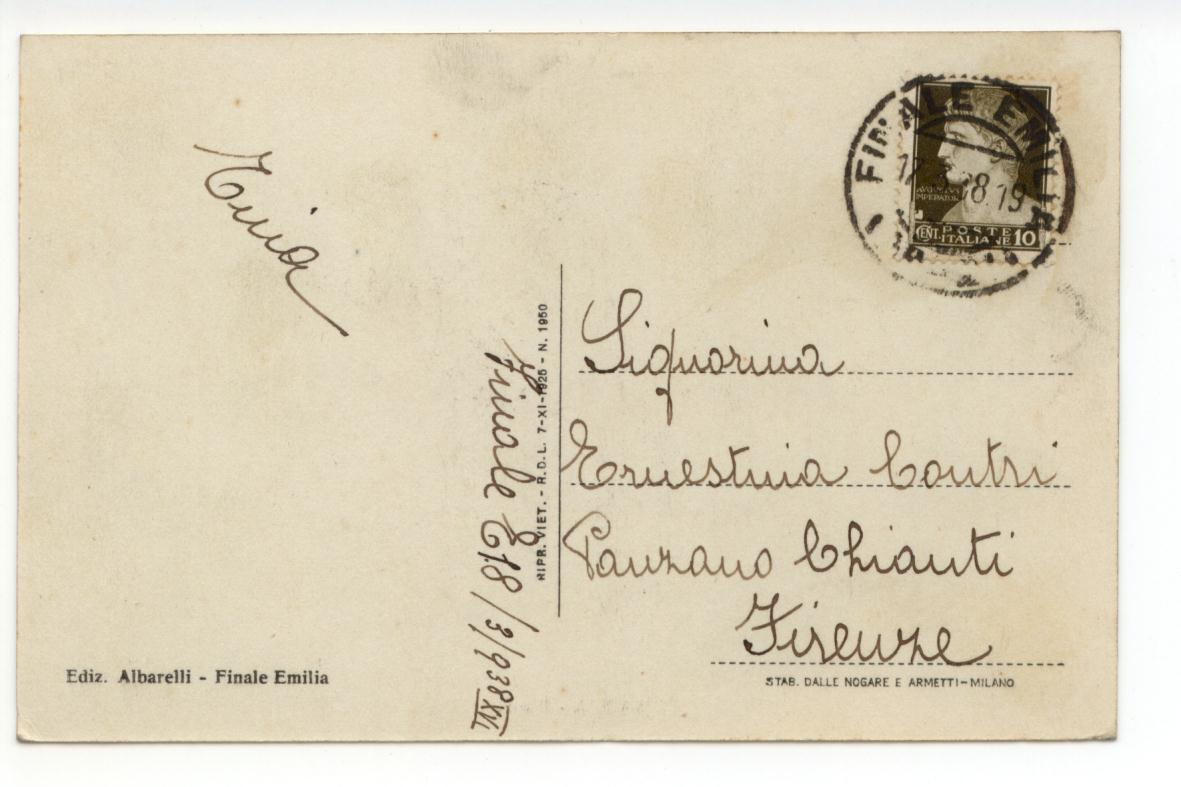 Tina
Finale E 18/3/938 XVI
RIPR. VIET. - R.D.L. 7-XI-1925 - N. 1950
Ediz. Albarelli - Finale Emilia
FINALE EMILIA
AVGVSTVS
IMPERATOR
CENT. POSTE
ITALIANE 10
Signorina
Ernestina Contri
Panzano Chianti
Firenze
STAB. DALLE NOGARE E ARMETTI-MILANO